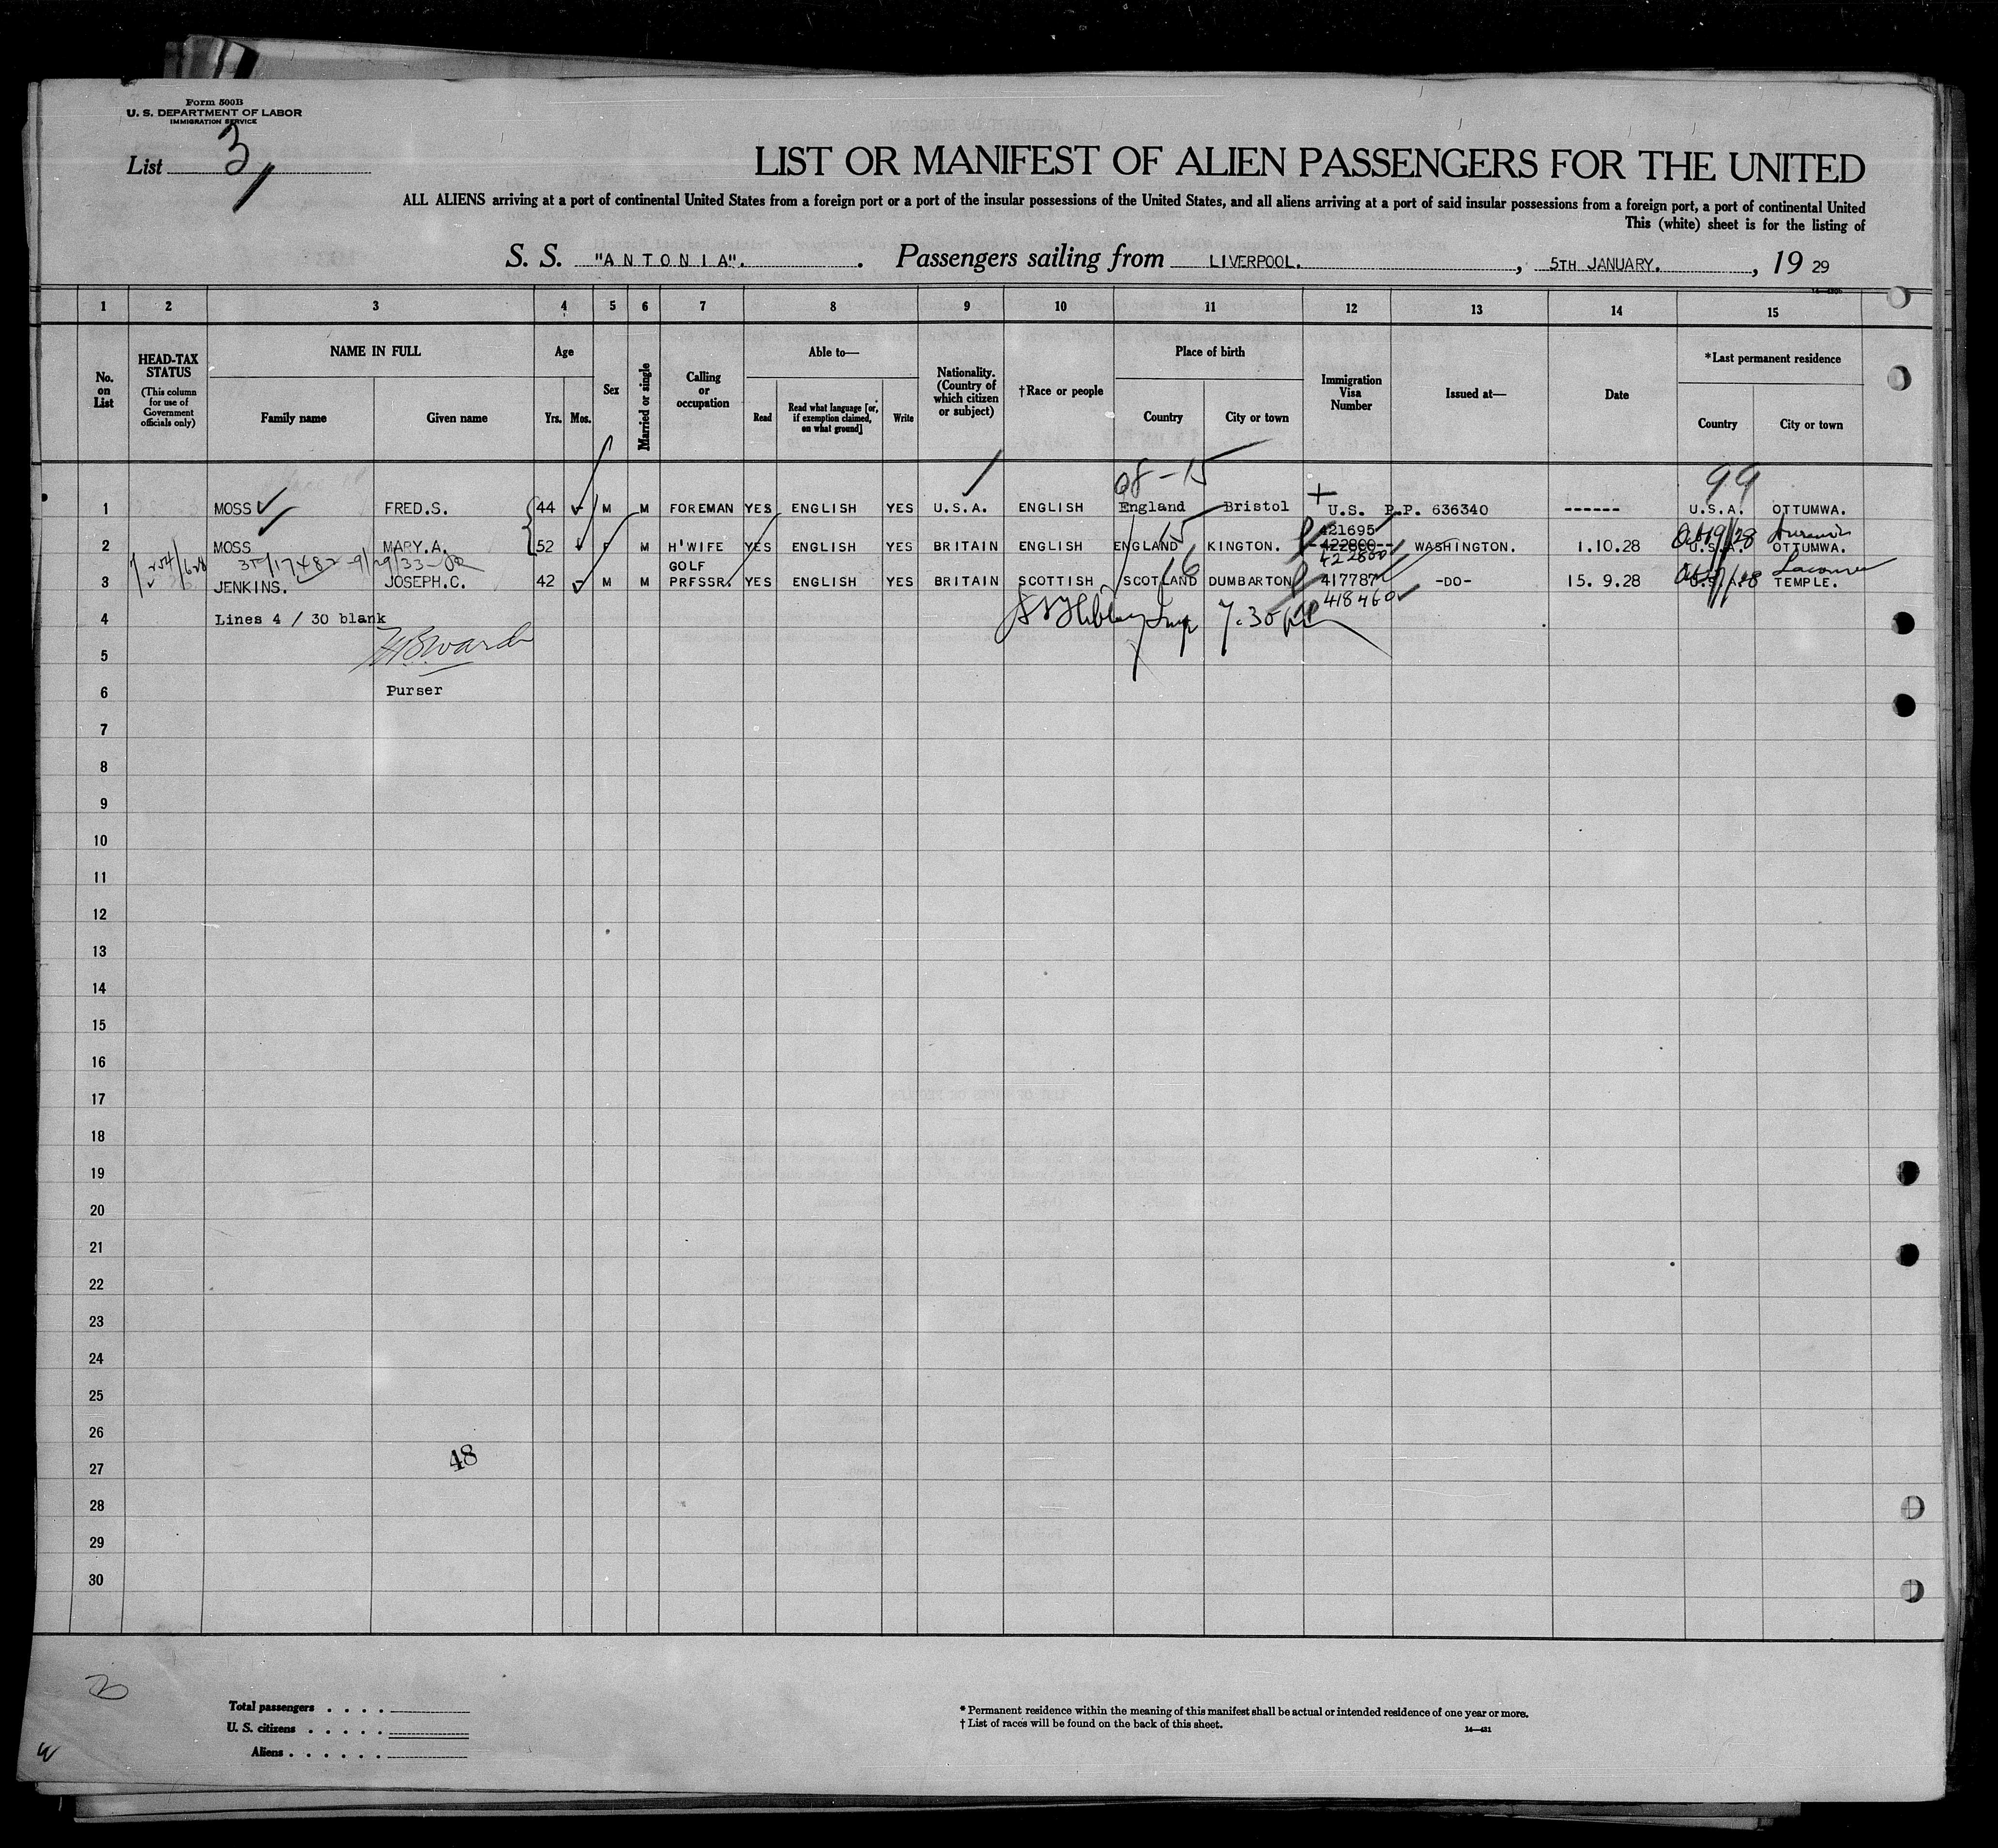 Form 500B
U. S. DEPARTMENT OF LABOR
IMMIGRATION SERVICE
List 3
LIST OR MANIFEST OF ALIEN PASSENGERS FOR THE UNITED
ALL ALIENS arriving at a port of continental United States from a foreign port or a port of the insular possessions of the United States, and all aliens arriving at a port of said insular possessions from a foreign port, a port of continental United
This (white) sheet is for the listing of
S. S. "ANTONIA". Passengers sailing from LIVERPOOL. , 5TH JANUARY. , 19 29
1 2 3 4 5 6 7 8 9 10 11 12 13 14 15
No. on List
HEAD-TAX STATUS
(This column for use of Government officials only)
NAME IN FULL
Family name
Given name
Age
Yrs.
Mos.
Sex
Married or single
Calling or occupation
Able to—
Read
Read what language [or, if exemption claimed, on what ground]
Write
Nationality. (Country of which citizen or subject)
†Race or people
Place of birth
Country
City or town
Immigration Visa Number
Issued at—
Date
*Last permanent residence
Country
City or town
98-15
99
1 MOSS FRED.S. 44 - M M FOREMAN YES ENGLISH YES U.S.A. ENGLISH England Bristol U.S. P.P. 636340 ------ U.S.A. OTTUMWA.
15
421695
2 MOSS MARY.A. 52 F M H'WIFE YES ENGLISH YES BRITAIN ENGLISH ENGLAND KINGTON. 422800 WASHINGTON. 1.10.28 U.S.A. OTTUMWA.
422800
16
3 JENKINS. JOSEPH.C. 42 - M M GOLF PRFSSR. YES ENGLISH YES BRITAIN SCOTTISH SCOTLAND DUMBARTON 417787 -DO- 15. 9.28 U.S.A. TEMPLE.
418460
4 Lines 4 / 30 blank
7.30
5
H.B.Ward
6 Purser
7
8
9
10
11
12
13
14
15
16
17
18
19
20
21
22
23
24
25
26
27
48
28
29
30
Total passengers . . . .
U. S. citizens . . . . .
Aliens . . . . . .
* Permanent residence within the meaning of this manifest shall be actual or intended residence of one year or more.
† List of races will be found on the back of this sheet.
14—431